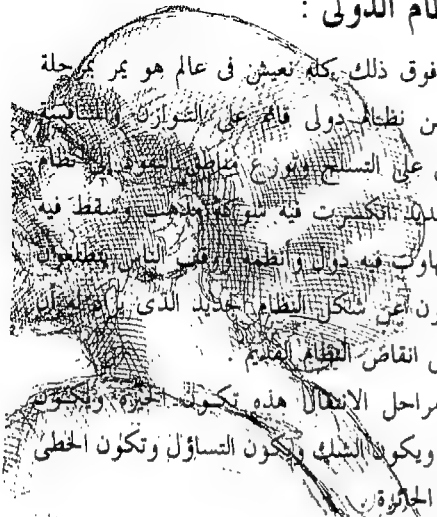 ظام الدولى :
فوق ذلك كله نعيش فى عالم هو يمر بمرحلة
من نظام دولى قائم على التوازن والمنافسة
على التسلح وتوزع مناطق النفوذ إلى نظام
جديد انكسرت فيه شوكة مذاهب وسقط فيه
هاوت فيه دول وأنظمة ووقف الناس يتطلعون
ون عن شكل النظام الجديد الذى يراد له أن
انقاض النظام القديم .
مراحل الانتقال هذه تكون الحيرة ويكون
ويكون الشك ويكون التساؤل وتكون الخطى
الحائرة .